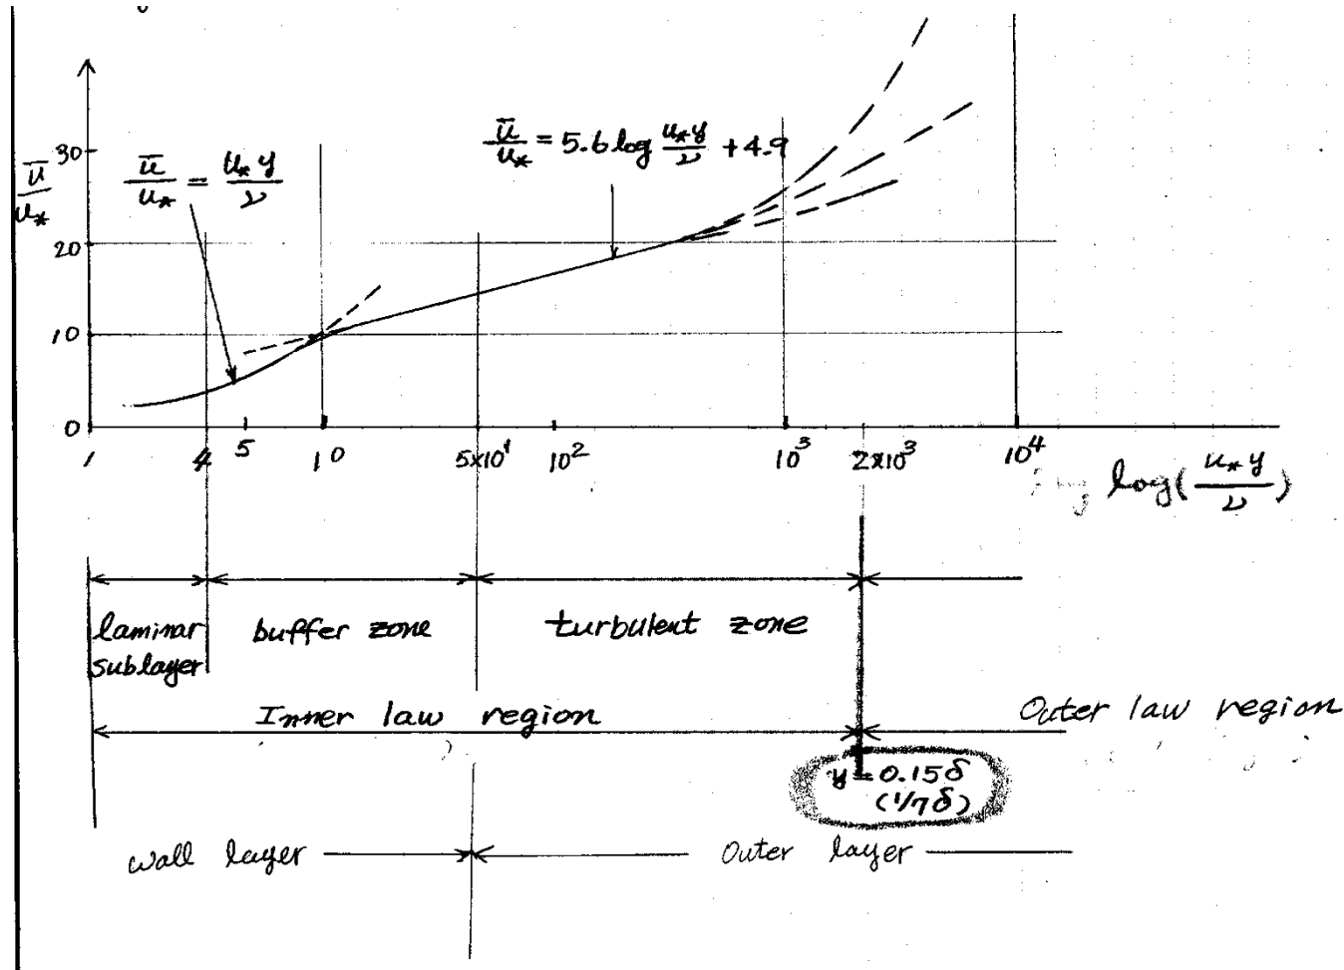 30
ū/u* = u* y/ν
ū/u* = 5.6 log u* y/ν + 4.9
ū/u*
20
10
0
1
4
5
10
5x10¹
10²
10³
2x10³
10⁴
log(u* y/ν)
laminar
sublayer
buffer zone
turbulent zone
Inner law region
Outer law region
y = 0.15δ
(1/7 δ)
wall layer
Outer layer